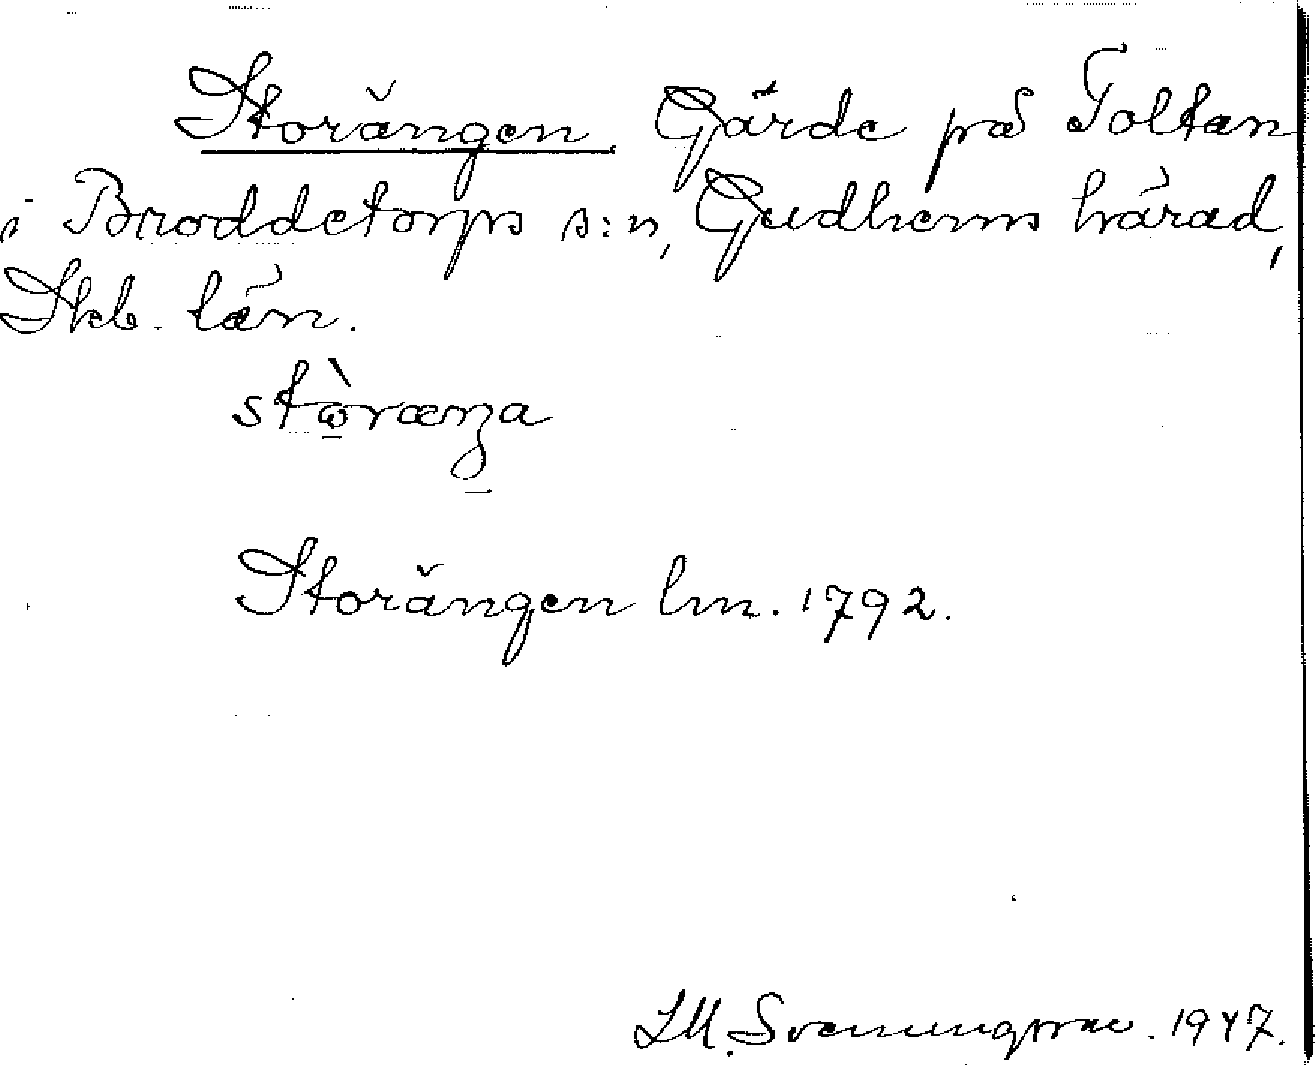 Storängen. Gärde på Toltan
i Broddetorps s:n, Gudhems härad,
Skb. län.
stòrænga
Storängen lm. 1792.
LM. Svenungsson. 1947.